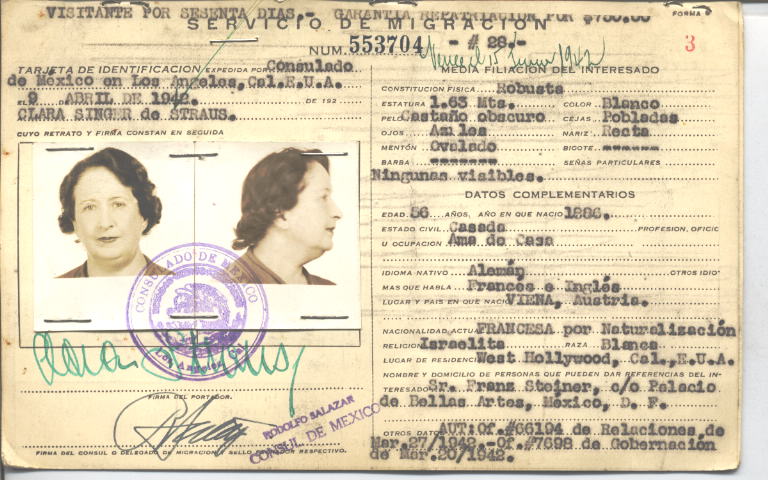 VISITANTE POR SESENTA DIAS.- GARANTIA REPATRIACION POR $750.00
FORMA
SERVICIO DE MIGRACION
NUM. 553704 - # 28.-
3
TARJETA DE IDENTIFICACION EXPEDIDA POR Consulado
de México en Los Angeles, Cal. E.U.A.
EL 9 ABRIL DE 1942. DE 192
CLARA SINGER de STRAUS.
CUYO RETRATO Y FIRMA CONSTAN EN SEGUIDA
CONSULADO DE MEXICO
Los Angeles
FIRMA DEL PORTADOR.
RODOLFO SALAZAR
CONSUL DE MEXICO
FIRMA DEL CONSUL O DELEGADO DE MIGRACION Y SELLO RESPECTIVO.
MEDIA FILIACION DEL INTERESADO
CONSTITUCION FISICA Robusta
ESTATURA 1.63 Mts. COLOR Blanco
PELO Castaño obscuro CEJAS Pobladas
OJOS Azules NARIZ Recta
MENTÓN Ovalado BIGOTE -------
BARBA ------- SEÑAS PARTICULARES
Ningunas visibles.
DATOS COMPLEMENTARIOS
EDAD 56 AÑOS, AÑO EN QUE NACIO 1886.
ESTADO CIVIL Casada PROFESION, OFICIO
U OCUPACION Ama de Casa
IDIOMA NATIVO Alemán OTROS IDIO
MAS QUE HABLA Frances e Inglés
LUGAR Y PAIS EN QUE NACIO VIENA, Austria.
NACIONALIDAD ACTUAL FRANCESA por Naturalización
RELIGION Israelita RAZA Blanca
LUGAR DE RESIDENCIA West Hollywood, Cal., E.U.A.
NOMBRE Y DOMICILIO DE PERSONAS QUE PUEDEN DAR REFERENCIAS DEL IN-
TERESADO Sr. Franz Steiner, c/o Palacio
de Bellas Artes, México, D. F.
OTROS DATOS AUT: Of. #66194 de Relaciones, de
Mar. 27/1942.-Of. #7698 de Gobernación
de Mar. 20/1942.